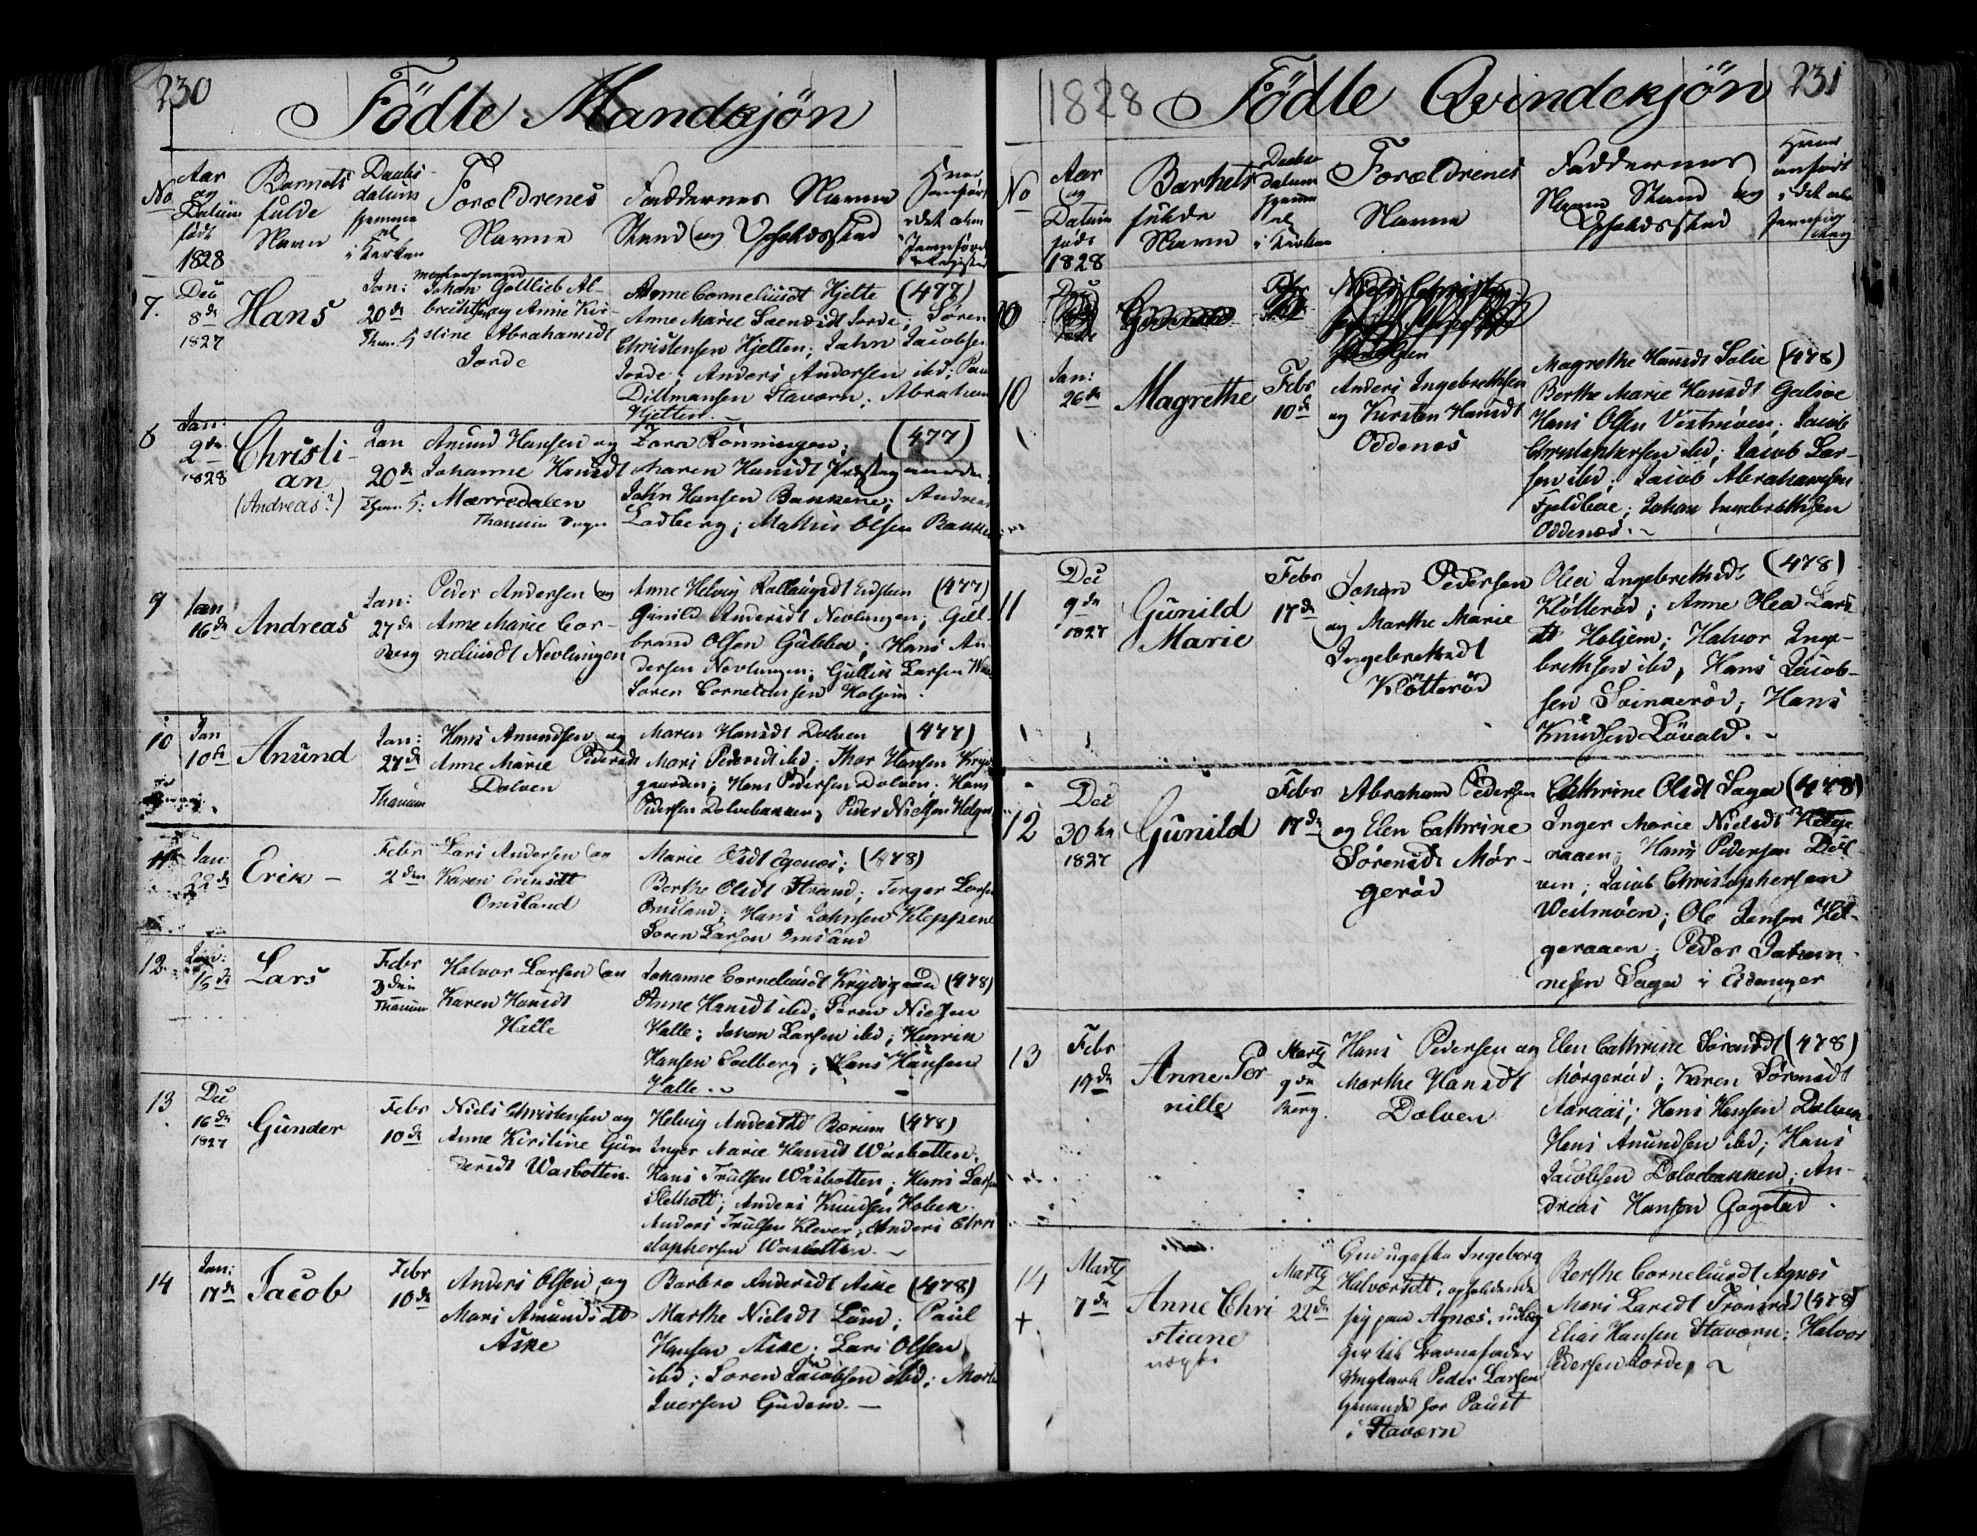 230
Födte Mandkjön
No
Aar
og
Datum
födt
1828
Barnets
fulde
Navn
Daabs
datum
hjemme
el
i Kirken
Forældrenes
Navne
Faddernes Navne
Stand og Opholdssted
Hvor
anført
i det alm
Jevnför
Register
7.
Dec
8de
1827
Hans
Jan:
20de
Johan Gottlieb Al-
brechtsen og Anne Kir-
stine Abrahamsdt
Jorde
Anne Corneliusdt Hjelte (477)
Anne Marie Svendsdt Jorde; Søren
Christensen Hjelten; John Jacobsen
Jorde; Anders Andersen ibd; Paul
Dillmansen Stavern; Abraham
Hjelten.
8
Jan:
2de
1828
Christi-
an
(Andreas?)
Jan
20de
Amund Hansen og
Johanne Hansdt
Mærredalen
Zora Rönningen; (477)
Maren Hansdt
John Hansen Bakkene; Andreas
Ladberg; Mathis Olsen Bakken
9
Jan
16de
Andreas
Jan:
27de
Berg
Peder Andersen og
Anne Marie Cor-
neliusdt Nevlungen
Anne Helvig (477)
Gunild Andersdt Nevlungen; Gul-
brand Olsen Gubben; Hans An-
dersen Nevlungen; Gullik Larsen
Søren Corneliussen Holjem.
10
Jan
10de
Anund
Jan:
27de
Thanum
Hans Anundsen og
Anne Marie Pedersdt
Dolven
Maren Hansdt Dolven (477)
Mari Pedersdt ibd; Thor Hansen
gaarden; Hans Pedersen Dolven; Hans
Pedersen Dolvebakken; Peder Nielsen
11
Jan:
22de
Erik –
Febr
2den
Lars Andersen og
Karen
Omsland
Marie Olsdt (478)
Berthe Olsdt Strand; Torger Larsen
Omsland; Hans Johnsen Kleppene
Søren Larsen Omsland
12
Jan:
16de
Lars
Febr
Thanum
Halvor Larsen og
Karen Hansdt
Halle
Johanne Corneliusdt (478)
Anne Hansdt ibd; Søren Nielsen
Halle; Johan Larsen ibd; Henrik
Hansen Solberg; Hans Hansen
Halle.
13
Dec
16de
1827
Gunder
Febr
10de
Niels Christensen og
Anne Kirstine Gun
dersdt Wasbotten
Helvig Andersdt Bærum (478)
Inger Marie Hansdt Wasbotten;
Hans Trulsen Wasbotten; Hans Larsen
Sletholt; Anders Knudsen Holien
Anders Trulsen Klever; Anders Chri
stophersen Wasbotten. –
14
Jan:
17de
Jacob
Febr
10de
Anders Olsen og
Mari Amundsdt
Aske
Barbro Andersdt Aske (478)
Marthe Nielsdt Lund; Paul
Hansen Aske; Lars Olsen
ibd; Søren Jacobsen ibd;
Iversen Gudem. –
1828
Födte Qvindekjön
231
No
Aar
og
Datum
föds
1828
Barnets
fulde
Navn
Daabs
datum
hjemme
el
i Kirken
Forældrenes
Navne
Faddernes
Navne Stand og
Opholdssted
Hvor
anfört
i det alm
10
Jan:
26de
Magrethe
Febr
10de
Anders Ingebrethsen
og Kirsten Hansdt
Oddenes
Magrethe Hansdt Solie (478)
Berthe Marie Hansdt Galsöe
Hans Olsen Vestmöen; Jacob
Christophersen ibd; Jacob Lar-
sen ibd; Jacob Abrahamsen
Fjeldböe; Johan Ingebrethsen
Oddenes. –
11
Dec
9de
1827
Gunild
Marie
Febr
17de
Johan Pedersen
og Marthe Marie
Ingebretsdt
Klötteröd
Olea Ingebrethsdt (478)
Klötteröd; Anne Olea Lars
dt Holjem; Halvor Inge-
brethsen ibd, Hans Jacob-
sen Svinneröd; Hans
Knudsen Løvald. –
12
Dec
30te
1827
Gunild
Febr
17de
Abraham Pedersen
og Elen Cathrine
Sörensdt Mör-
geröd
Cathrine Olsdt Sage (478)
Inger Marie Nielsdt Helge
raaen; Hans Pedersen Dol
ven; Jacob Christophersen
Westmöen; Ole Jensen Hel-
geraaen; Peder Johan-
nesen Sage i Eidanger
13
Febr
19de
Anne Per-
nille
Martz
9de
Berg.
Hans Pedersen og
Marthe Hansdt
Dolven
Elen Cathrine Sörensdt (478)
Mörgeröd; Karen Sörensdt
Aaraas; Hans Hansen Dolven
Hans Anundsen ibd; Hans
Jacobsen Dolvebakken; An-
dreas Hansen Gogstad.
14
+
Martz
7de
Anne Chri
stiane
uægte
Martz
22de
Ingeborg
Halvorsdt, opholdende
sig paa Agnes; udlæg
ger til Barnefader
Ungkarl Peder Larsen
tjenende for Paust
i Stavern
Berthe Corneliusdt Agnes
Mari Larsdt (478)
Elias Hansen Stavern; Halvor
Pedersen Jorde.